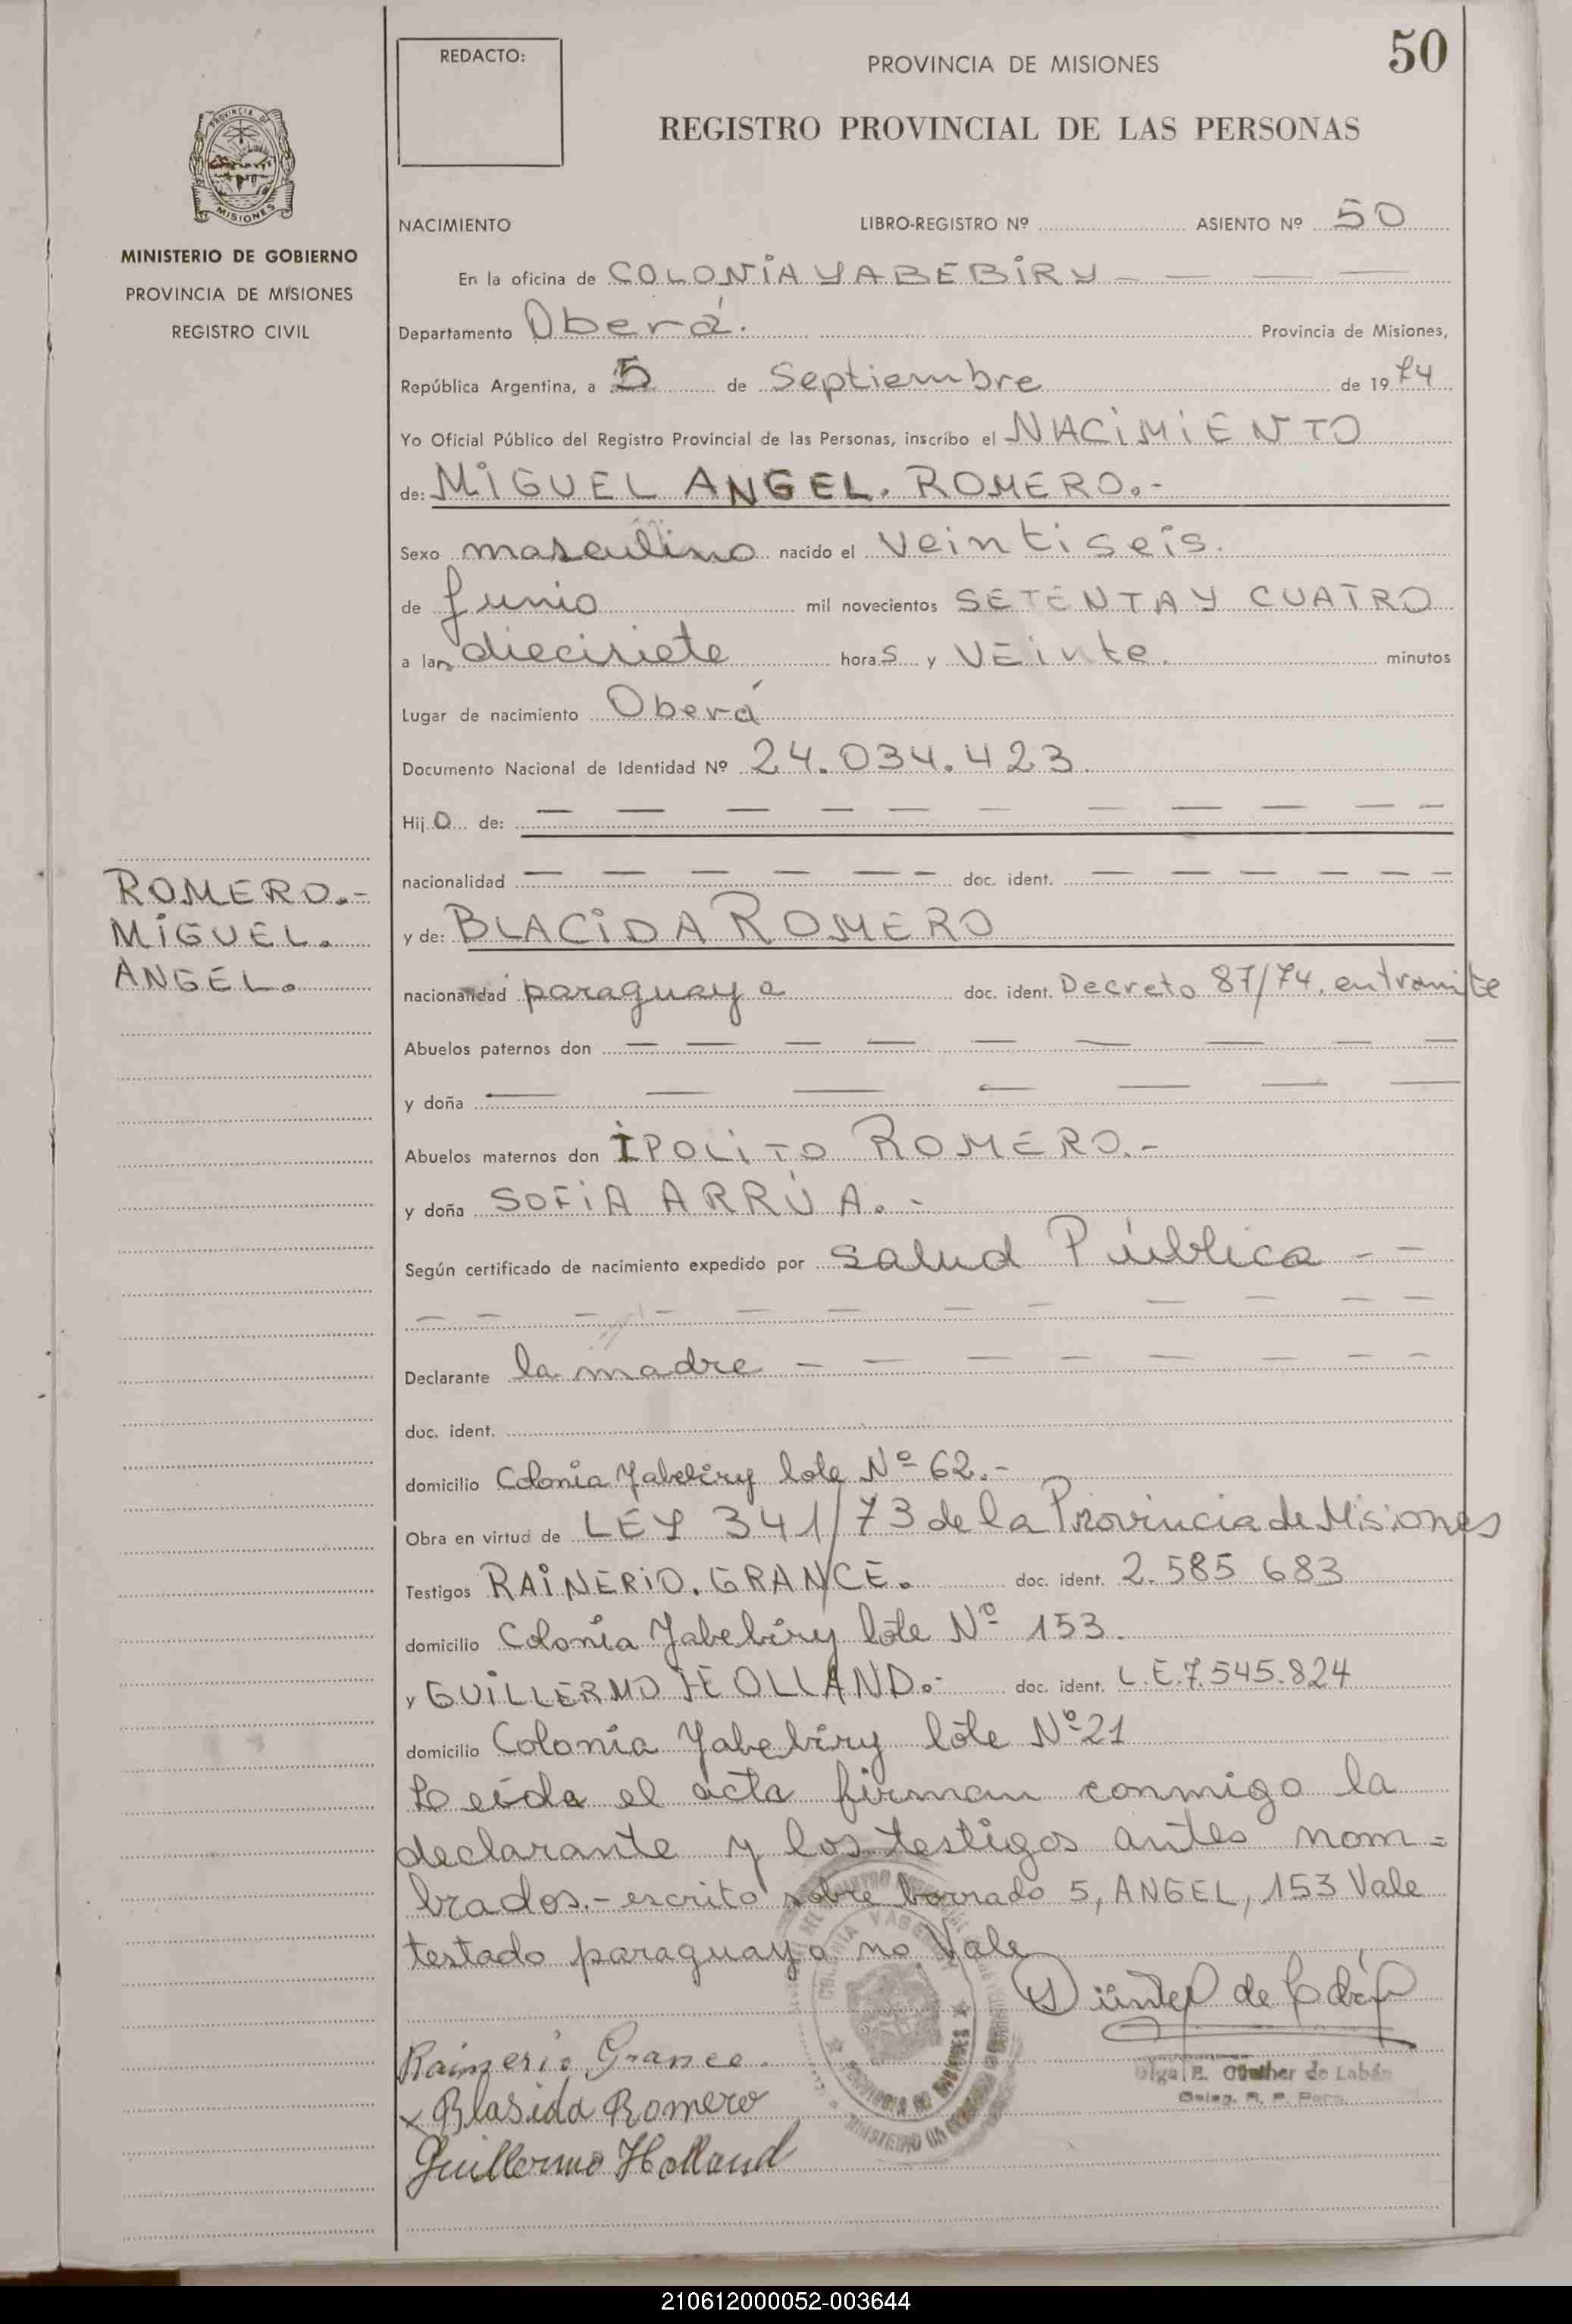 REDACTO:
PROVINCIA DE MISIONES
50
REGISTRO PROVINCIAL DE LAS PERSONAS
PROVINCIA DE
MISIONES
MINISTERIO DE GOBIERNO
PROVINCIA DE MISIONES
REGISTRO CIVIL
NACIMIENTO LIBRO-REGISTRO Nº ASIENTO Nº 50
En la oficina de COLONiA YABEBiRY
Departamento Oberá. Provincia de Misiones,
República Argentina, a 5 de Septiembre de 1974
Yo Oficial Público del Registro Provincial de las Personas, inscribo el NACiMiENTO
de: MiGUEL ANGEL. ROMERO.-
Sexo masculino nacido el veintiseis.
de Junio mil novecientos SETENTA Y CUATRO
a las diecisiete horas y VEinte. minutos
Lugar de nacimiento Oberá
Documento Nacional de Identidad Nº 24.034.423.
Hijo de:
nacionalidad doc. ident.
y de: BLACiDA ROMERO
nacionalidad paraguaya doc. ident. Decreto 87/74. entramite
Abuelos paternos don
y doña
Abuelos maternos don iPOLiTO ROMERO.-
y doña SOFiA ARRÚA.-
Según certificado de nacimiento expedido por salud Pública - -
Declarante la madre
doc. ident.
domicilio Colonia Yabebiry lote Nº 62.-
Obra en virtud de LEY 341/73 de la Provincia de Misiones
Testigos RAiNERiO. GRANCE. doc. ident. 2.585 683
domicilio Colonia Yabebiry lote Nº 153.
y GUiLLERMO HOLLAND.- doc. ident. L.E.7.545.824
domicilio Colonia Yabebiry lote Nº 21
Leída el acta firman conmigo la
declarante y los testigos antes nom=
brados.- escrito sobre borrado 5, ANGEL, 153 Vale
testado paraguaya no Vale
ROMERO.-
MiGUEL.
ANGEL.
Rainerio Grance.
x Blasida Romero
Guillermo Holland
Olga E. Günther de Labán
Deleg. R. P. Pers.
210612000052-003644